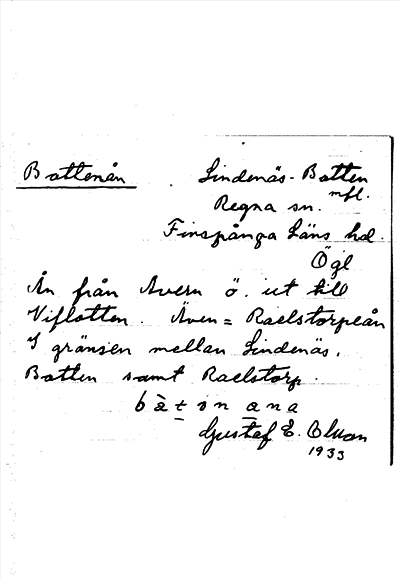 Battenån
Lindenäs-Batten
mfl.
Regna sn.
Finspånga Läns hd.
Ögl
Ån från Avern ö. ut till
Viflotten. Även = Raelstorpeån
I gränsen mellan Lindenäs,
Batten samt Raelstorp.
Gustaf E.
1933